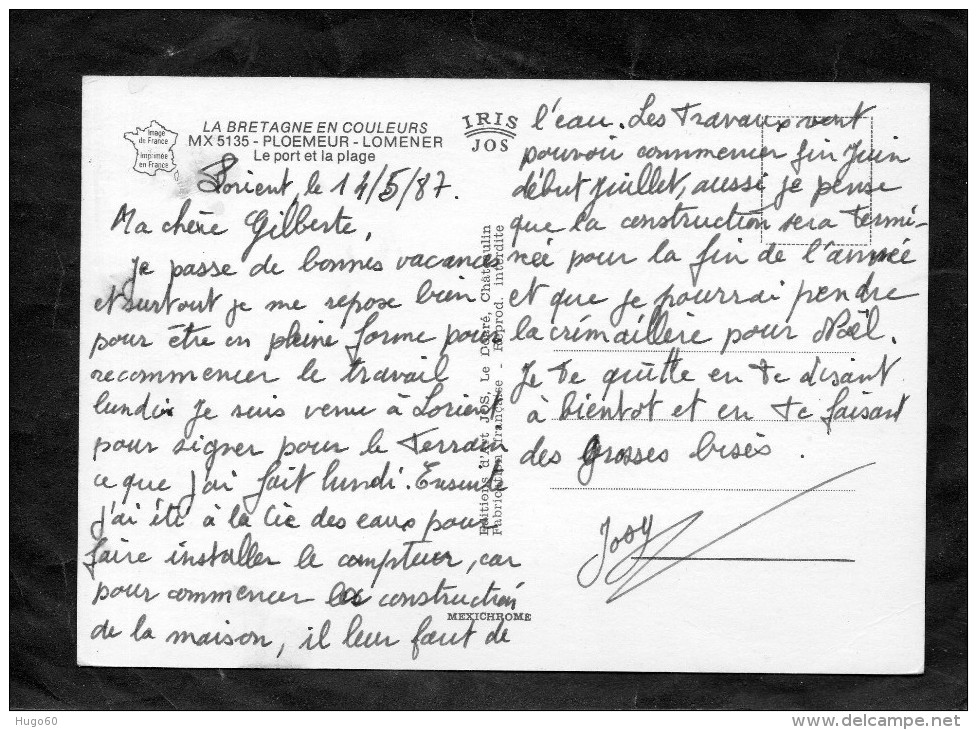 Image
de France
Imprimée
en France
LA BRETAGNE EN COULEURS
MX 5135 - PLOEMEUR - LOMENER
Le port et la plage
IRIS
JOS
Lorient, le 14/5/87.
Ma chère Gilberte,
Je passe de bonnes vacances
et surtout je me repose bien
pour être en pleine forme pour
recommencer le travail
lundi. Je suis venu à Lorient
pour signer pour le terrain
ce que j'ai fait lundi. Ensuite
j'ai été à la Cie des eaux pour
faire installer le compteur, car
pour commencer la construction
de la maison, il leur faut de
l'eau. Les travaux vont
pouvoir commencer fin Juin
début Juillet, aussi je pense
que la construction sera termi-
née pour la fin de l'année
et que je pourrai pendre
la crémaillère pour Noël.
Je te quitte en te disant
à bientot et en te faisant
des grosses bises.
Josy
Editions d'Art JOS, Le Doaré, Châteaulin
Fabrication française - Reprod. interdite
MEXICHROME
Hugo60
www.delcampe.net